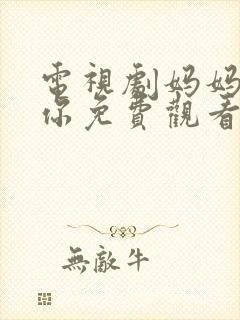 電視劇媽媽
你免費觀看
無敵牛